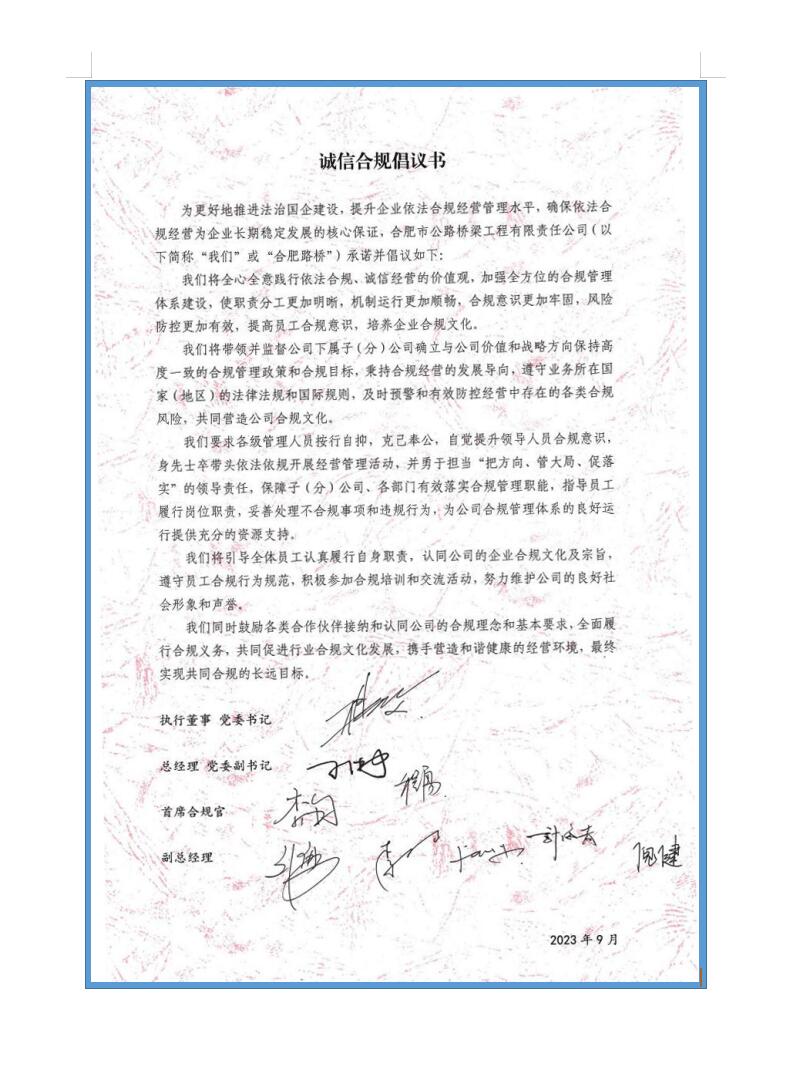 诚信合规倡议书
为更好地推进法治国企建设，提升企业依法合规经营管理水平，确保依法合
规经营为企业长期稳定发展的核心保证，合肥市公路桥梁工程有限责任公司（以
下简称“我们”或“合肥路桥”）承诺并倡议如下：
我们将全心全意践行依法合规、诚信经营的价值观，加强全方位的合规管理
体系建设，使职责分工更加明晰，机制运行更加顺畅，合规意识更加牢固，风险
防控更加有效，提高员工合规意识，培养企业合规文化。
我们将带领并监督公司下属子（分）公司确立与公司价值和战略方向保持高
度一致的合规管理政策和合规目标，秉持合规经营的发展导向，遵守业务所在国
家（地区）的法律法规和国际规则，及时预警和有效防控经营中存在的各类合规
风险，共同营造公司合规文化。
我们要求各级管理人员按行自抑，克己奉公，自觉提升领导人员合规意识，
身先士卒带头依法依规开展经营管理活动，并勇于担当“把方向、管大局、促落
实”的领导责任，保障子（分）公司、各部门有效落实合规管理职能，指导员工
履行岗位职责，妥善处理不合规事项和违规行为，为公司合规管理体系的良好运
行提供充分的资源支持。
我们将引导全体员工认真履行自身职责，认同公司的企业合规文化及宗旨，
遵守员工合规行为规范，积极参加合规培训和交流活动，努力维护公司的良好社
会形象和声誉。
我们同时鼓励各类合作伙伴接纳和认同公司的合规理念和基本要求，全面履
行合规义务，共同促进行业合规文化发展，携手营造和谐健康的经营环境，最终
实现共同合规的长远目标。
执行董事 党委书记
总经理 党委副书记
首席合规官
副总经理
2023 年 9 月